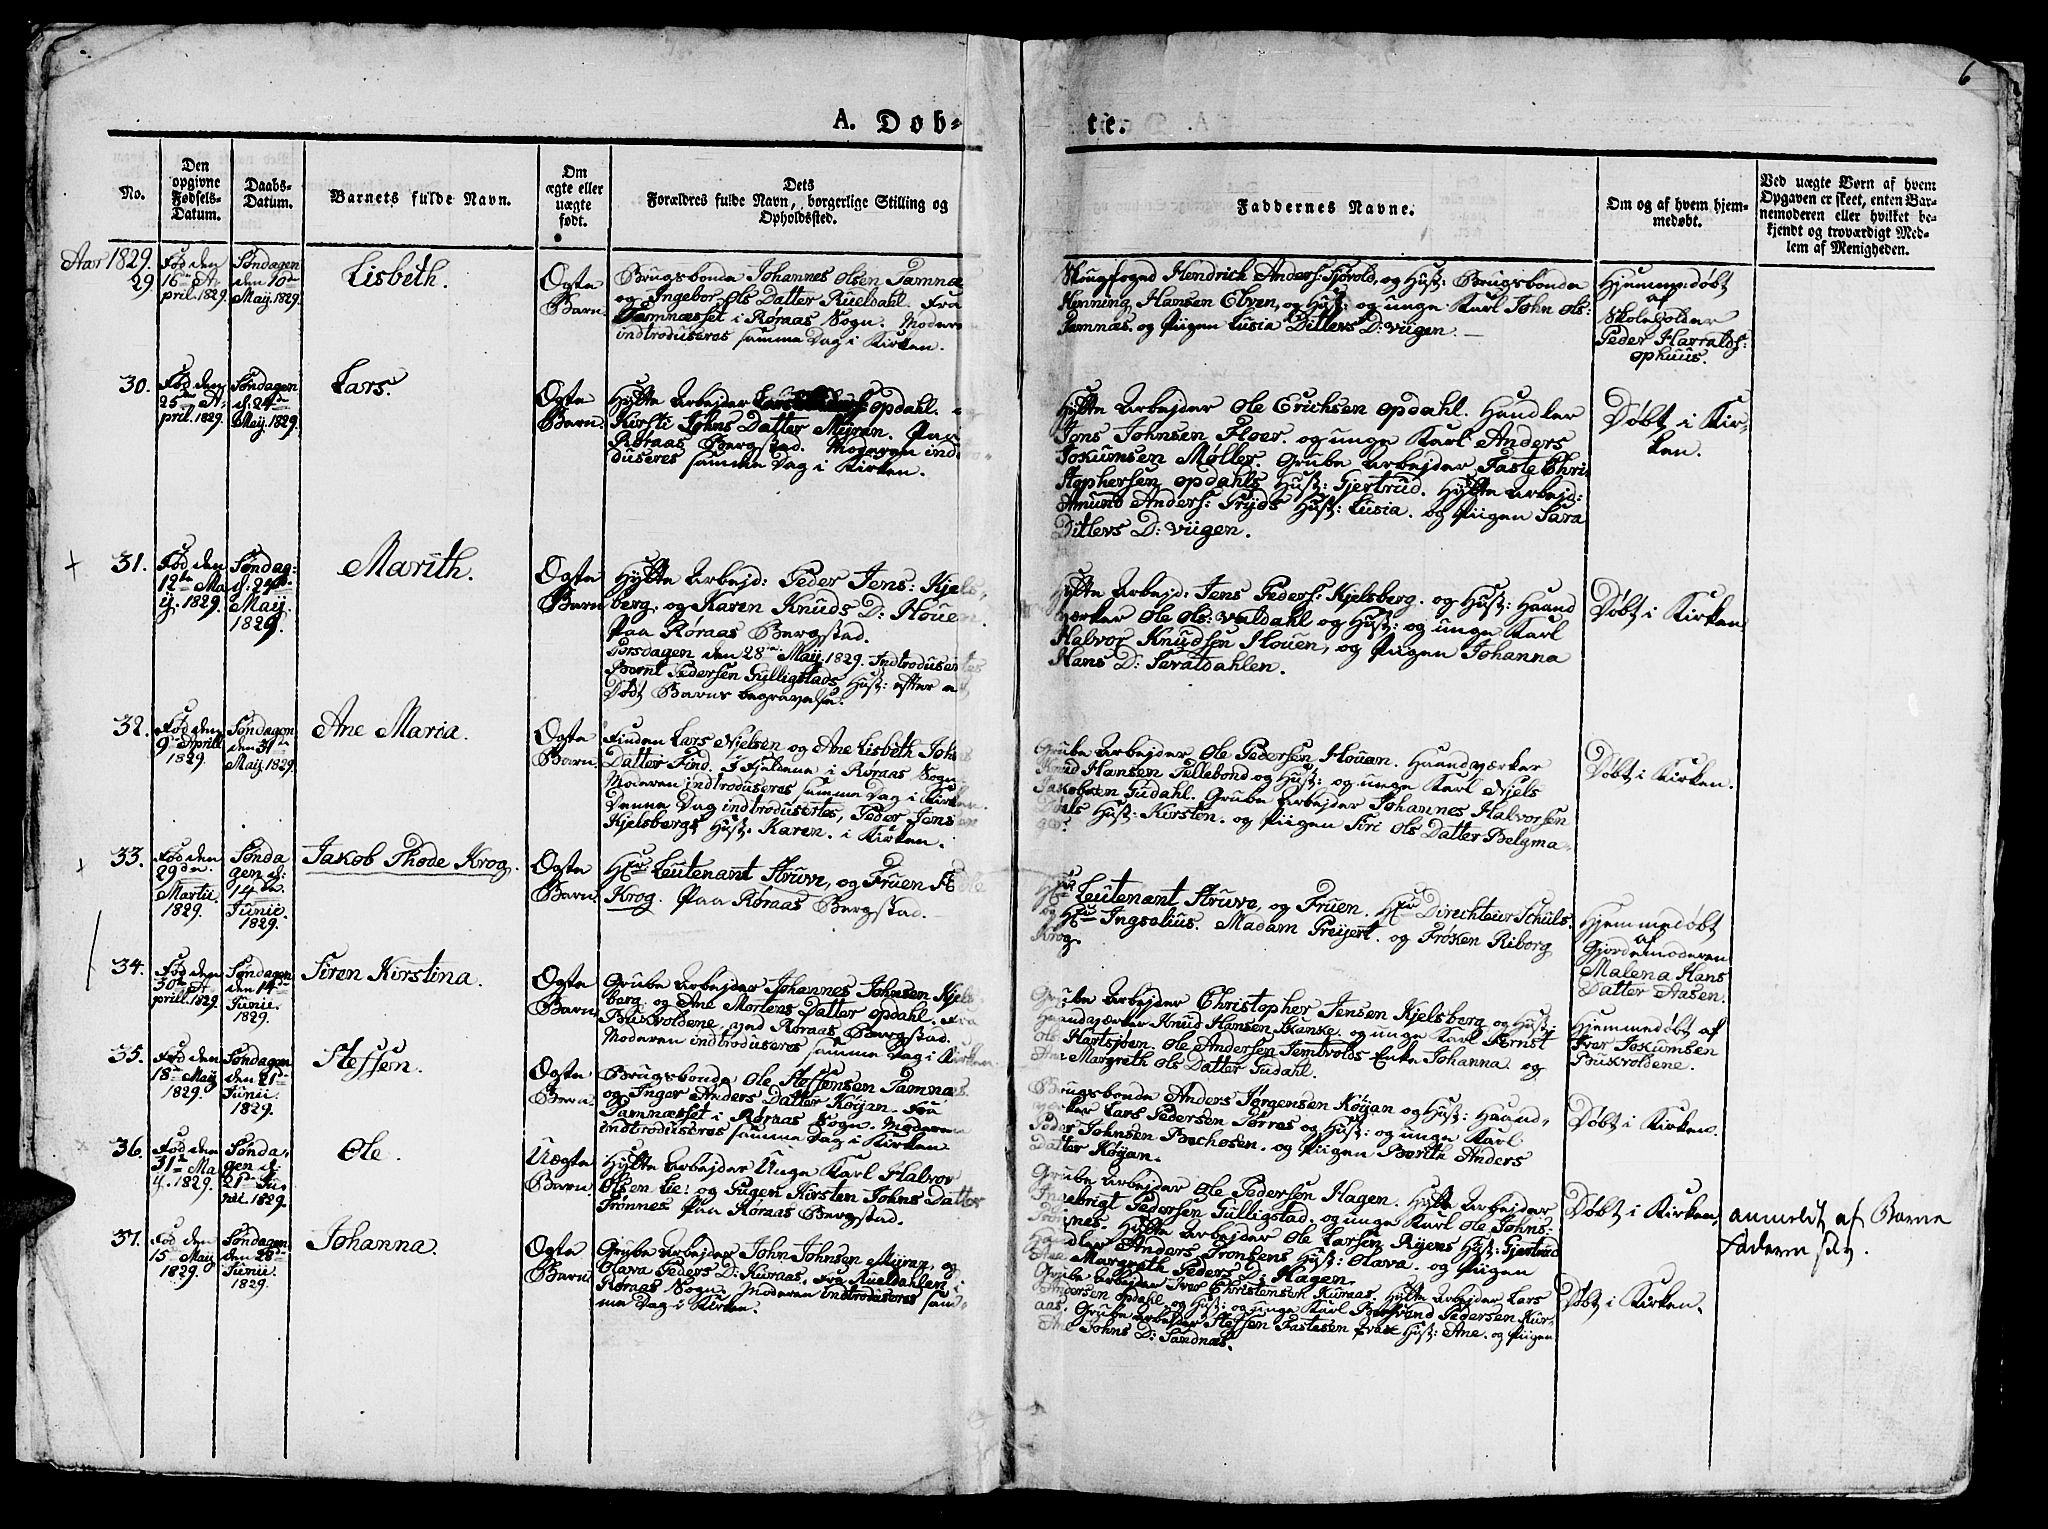 6
A. Døb-
te.
No.
Den
opgivne
Fødsels-
Datum.
Daabs-
Datum.
Barnets fulde Navn.
Om
ægte eller
uægte
født.
Dets
Forældres fulde Navn, borgerlige Stilling og
Opholdssted.
Faddernes Navne.
Om og af hvem hjem-
medøbt.
Ved uægte Børn af hvem
Opgaven er skeet, enten Bar-
nemoderen eller hvilket be-
kjendt og troværdigt Med-
lem af Menigheden.
Aar 1829.
29.
Fød den
16de A-
pril. 1829.
Søndagen
den 10de
May. 1829.
Lisbeth.
Ægte
Barn.
Brugsbonde Johannes Olsen Tamnæ
og Ingebor Ols Datter Rueldahl. Fra
Tamnæsset i Røraas Sogn. Moderen
indtroduseres samme Dag i Kirken.
Skougfoged Hendrick Anders: Sjøvold, og Hust: Brugsbonde
Henning Hansen Elven, og Hust: og unge Karl John Ols:
Tamnæs. og Piigen Lusia Ditlevs D: Viigen.
Hjemmedøbt
af
Skoleholder
Peder Harralds:
Ophuus.
30.
Fød den
25de A-
pril. 1829.
Søndagen
d. 24de
May. 1829.
Lars.
Ægte
Barn.
Hytte Arbejder Opdahl.
Kirsti Johns Datter Myran. Paa
Røraas Bergstad. Moderen indtro-
duseres samme Dag i Kirken.
Hytte Arbejder Ole Erichsen Opdahl. Handler
Jens Johnsen Floer. og unge Karl Anders
Jokumsen Møller. Grube Arbejder Faste Chri
stophersen Opdahls Hust: Gjertrud. Hytte Arbejd:
Amund Anders: Fryds Hust: Lusia. og Piigen Sara
Ditlevs D: Viigen.
Døbt i Kir-
ken.
31.
Fød den
12te Ma
y. 1829.
Søndag:
d: 24de
May.
1829.
Marith.
Ægte
Barn
Hytte Arbejd: Peder Jens: Kjels-
berg, og Karen Knuds D: Houen.
Paa Røraas Bergstad.
Torsdagen den 28de May. 1829. Indtrodusertes
Bernt Pedersen Gulligstads Hust: efter et
Dødt Barns begravelse.
Hytte Arbejd: Jens Peders: Kjelsberg. og Hust: Haand
værker Ole Ols: Valdahl og Hust: og unge Karl
Halvor Knudsen Houen, og Piigen Johanna
Hans D: Sevatdahlen.
Døbt i Kirken
32.
Fød den
9de Aprill
1829.
Søndagen
den 31te
May. 1829.
Ane Maria.
Ægte
Barn.
Finden Lars Nielsen og Ane Lisbeth Johns
Datter Find. I Fjeldene i Røraas Sogn.
Moderen indtroduseres samme Dag i Kirken.
Denne Dag indtrodusertes, Peder Jensen
Kjelsbergs Hust: Karen. i Kirken.
Grube Arbejder Ole Pedersen Houan. Haandværker
Knud Hansen Tellebond og Hust: og unge Karl Niels
Jakobsen Sudahl. Grube Arbejder Johannes Halvorsen
Døels Hust: Kirsten. og Piigen Siri Ols Datter Belgma-
ger.
Døbt i Kirken.
33.
Fød den
29de
Martii
1829.
Sønda
gen d:
14de
Junii.
1829.
Jakob Thode Krog.
Ægte
Barn.
Hr: Leutenant Struve, og Fruen Født
Krog. Paa Røraas Bergstad.
Hr: Leutenant Struve, og Fruen. Hr: Directeur Schults.
og Hr: Ingsalius. Madam Preijert. og Frøken Riborg
Krog.
Hjemmedøbt
af
Gjordemoderen
Malena Hans
Datter Aasen.
34.
Fød den
30te A-
prill. 1829.
Søndagen
den 14de
Junii.
1829.
Siren Kirstina.
Ægte
Barn.
Grube Arbejder Johannes Johnsen Kjels
berg, og Ane Mortens Datter Opdahl. Fra
Bukvoldene ved Røraas Bergstad.
Moderen indtroduseres samme Dag i Kirken.
Grube Arbejder Christopher Jensen Kjelsberg og Hust:
Haandværker Knud Hansen Skanke. og unge Karl Bernt
Ols Hartsjøen. Ole Andersen Jemtvolds Enke Johanna. og
Ane Margreth Ols Datter Sudahl.
Hjemmedøbt af
Iver Jokumsen
Bukvoldene.
35.
Fød den
18de May
1829.
Søndagen
den 21de
Junii.
1829.
Steffen.
Ægte
Barn.
Brugsbonde Ole Steffensen Tamnæs.
og Inger Anders Datter Køjan. Fra
Tamnæsset i Røraas Sogn. Moderen
indtroduseres samme Dag i Kirken
Brugsbonde Anders Jørgensen Køjan og Hust: Haand-
værker Lars Pedersen Torres og Hust: og unge Karl
Peder Johnsen Bechosen. og Piigen Berith Anders
Datter Køjan.
Døbt i Kirken.
36.
Fød den
31te Ma
y. 1829.
Sønda-
gen d:
21de Ju-
nii. 1829.
Ole.
Uægte
Barn.
Hytte Arbejder Unge Karl Halvor
Olsen Lie. og Pugen Kirsten Johns Datter
Trønnes Paa Røraas Bergstad.
Grube Arbejder Ole Pedersen Hagen. Hytte Arbejder
Ingebrigt Pedersen Gulligstad. og unge Karl Ole Johns:
Trønnes. Hytte Arbejder Ole Larsen Ryens Hust: Gjertrud
Handler Anders Tronsens Hust: Olava. og Piigen
Ane Margreth Peders D: Hagen.
Døbt i Kirken.
anmeldt af Barne
faderen selv.
37.
Fød den
15de May
1829.
Søndagen
den 28de
Junii.
1829.
Johanna.
Ægte
Barn.
Grube Arbejder John Johnsen Myran, og
Olava Peders D: Kuraas. Fra Rueldahlen i
Røraas Sogn. Moderen indtroduseres sam-
me Dag i Kirken.
Grube Arbejder Iver Christensen Kuraas. Hytte Arbejder Lars
Andersen Opdahl og Hust: og unge Karl Pedersen Kur-
aas. Grube Arbejder Steffen Fastesen Hust: Ane. og Piigen
Ane Johns D: Sandnæs.
Døbt i Kirken.